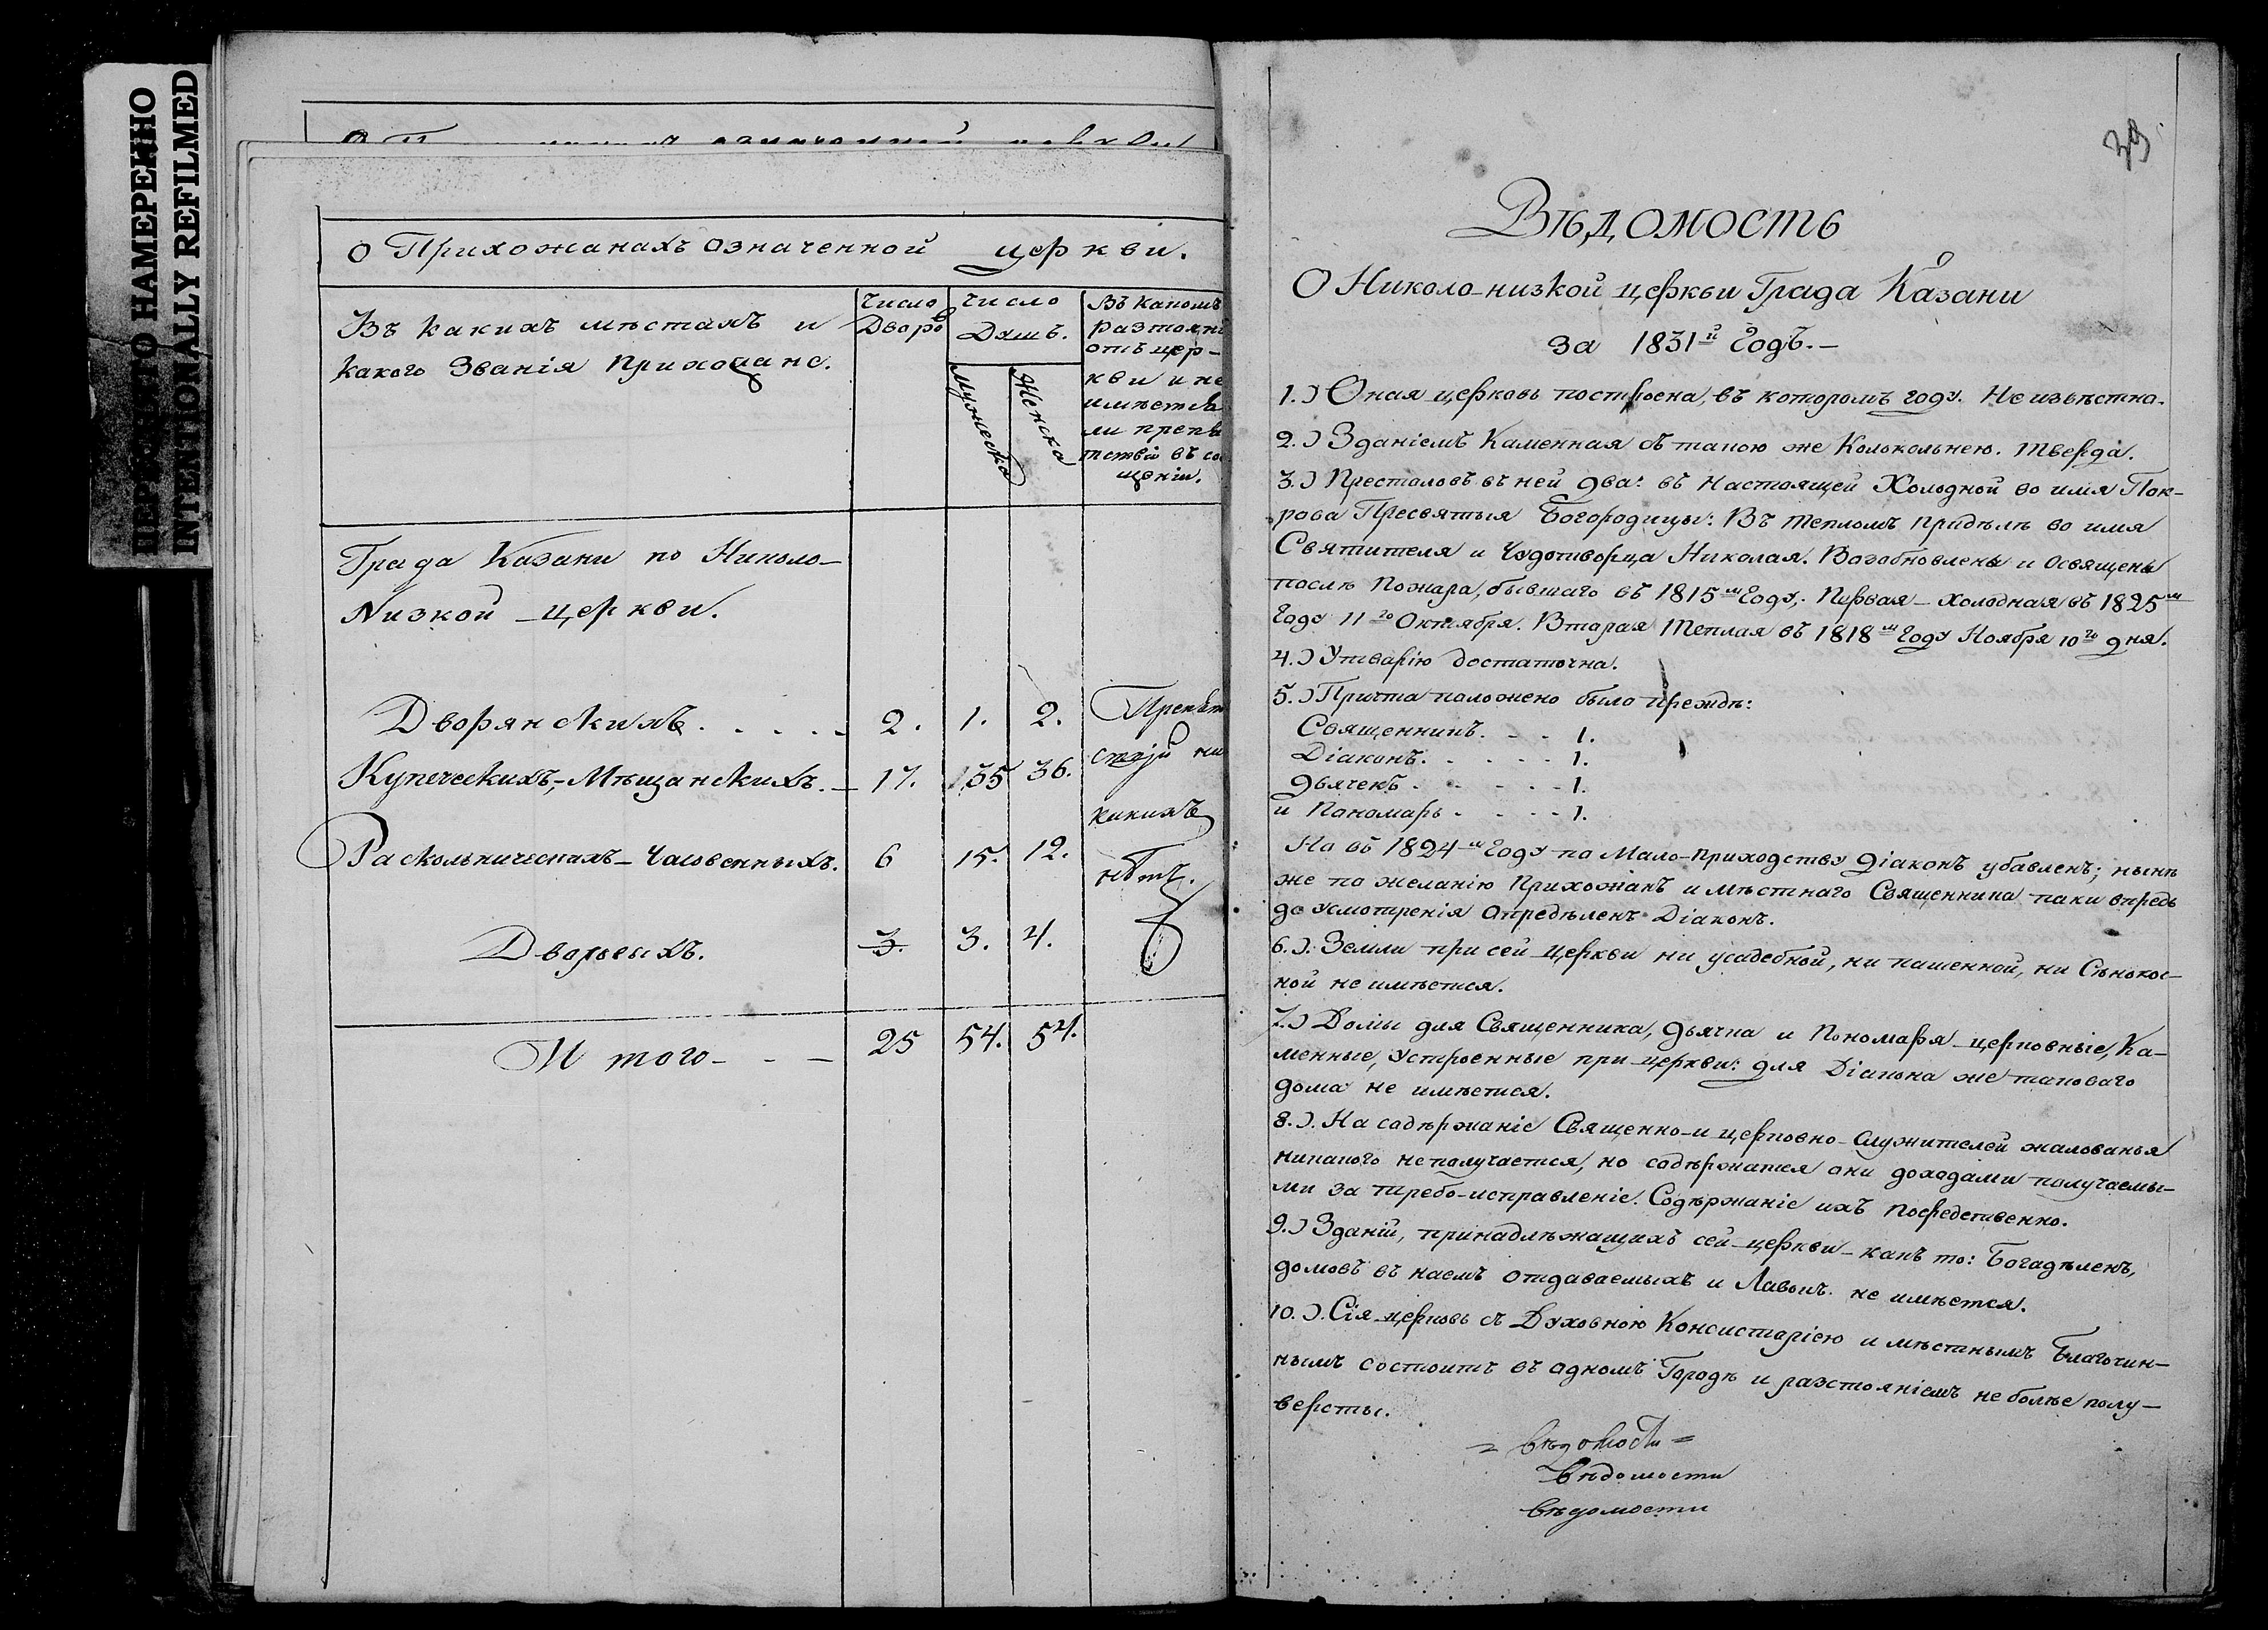 ПЕРЕСНЯТО НАМЕРЕННО
INTENTIONALLY REFILMED
о Прихожанахъ означенной церкви.
Въ какихъ мѣстахъ и
какого Званія Прихожане.
Число
Дворовъ
Число
Душъ.
Мужеска
Женска
Въ какомъ
разтояні
отъ цер-
кви и не
имѣется
ли препя
тствій въ соо
щеніи.
Града Казани по Николо-
Низкой церкви.
Дворянскихъ. . . . . 2. 1. 2. Препят
Купеческихъ,-Мѣщанскихъ. - 17. 35 36. ствій ни
какихъ
Раскольническихъ-Часовенныхъ. 6 15. 12. нѣтъ.
Дворовыхъ. 3. 3. 4.
И того - - - 25 54. 54.
39
Вѣдомость
О Николо-низкой церкви Града Казани
за 1831й Годъ.-
1.) Оная церковь построена, въ которомъ году. Не извѣстно.
2.) Зданіемъ Каменная съ такою же Колокольнею. Тверда.
3.) Престоловъ въ ней два: въ Настоящей Холодной во имя Пок-
рова Пресвятыя Богородицы: Въ Тепломъ придѣлѣ во имя
Святителя и Чудотворца Николая. Возобновлены и Освящены
послѣ Пожара, бывшаго въ 1815м Году. Первая - холодная въ 1825м
Году 11го Октября. Вторая Теплая въ 1818м Году Ноября 10го дня.
4.) Утварію достаточна.
5.) Причта положено было преждѣ:
Священникъ. - - 1.
Діаконъ. . . . . . 1.
Дьячекъ . . . . . - 1.
и Пономарь . . . . - 1.
Но въ 1824м Году по Мало-приходству Діаконъ убавленъ; нынѣ
же по желанію Прихожанъ и мѣстнаго Священника паки впредь
до усмотренія Опредѣленъ Діаконъ.
6.). Земли при сей церкви ни усадебной, ни пашенной, ни Сѣнокос-
ной не имѣется.
7.) Домы для Священника, Дьячка и Пономаря церковные, Ка-
менные, Устроенные при церкви: для Діакона же таковаго
дома не имѣется.
8.). На содѣржаніе Священно-и церковно-Служителей жалованья
никакого неполучается, но содѣржатся они доходами получаемы-
ми за требо-исправленіе. Содѣржаніе ихъ Посредственно.
9.) Зданій, принадлѣжащихъ сей церкви - какъ то: Богадѣленъ,
домовъ въ наемъ отдаваемыхъ и Лавокъ не имѣется.
10.). Сія церковь съ Духовною Консисторіею и мѣстнымъ Благочин-
нымъ состоитъ въ одномъ Городѣ и разстояніемъ не болѣе полу-
версты.
= вѣдомости =
Вѣдомости
вѣдомости